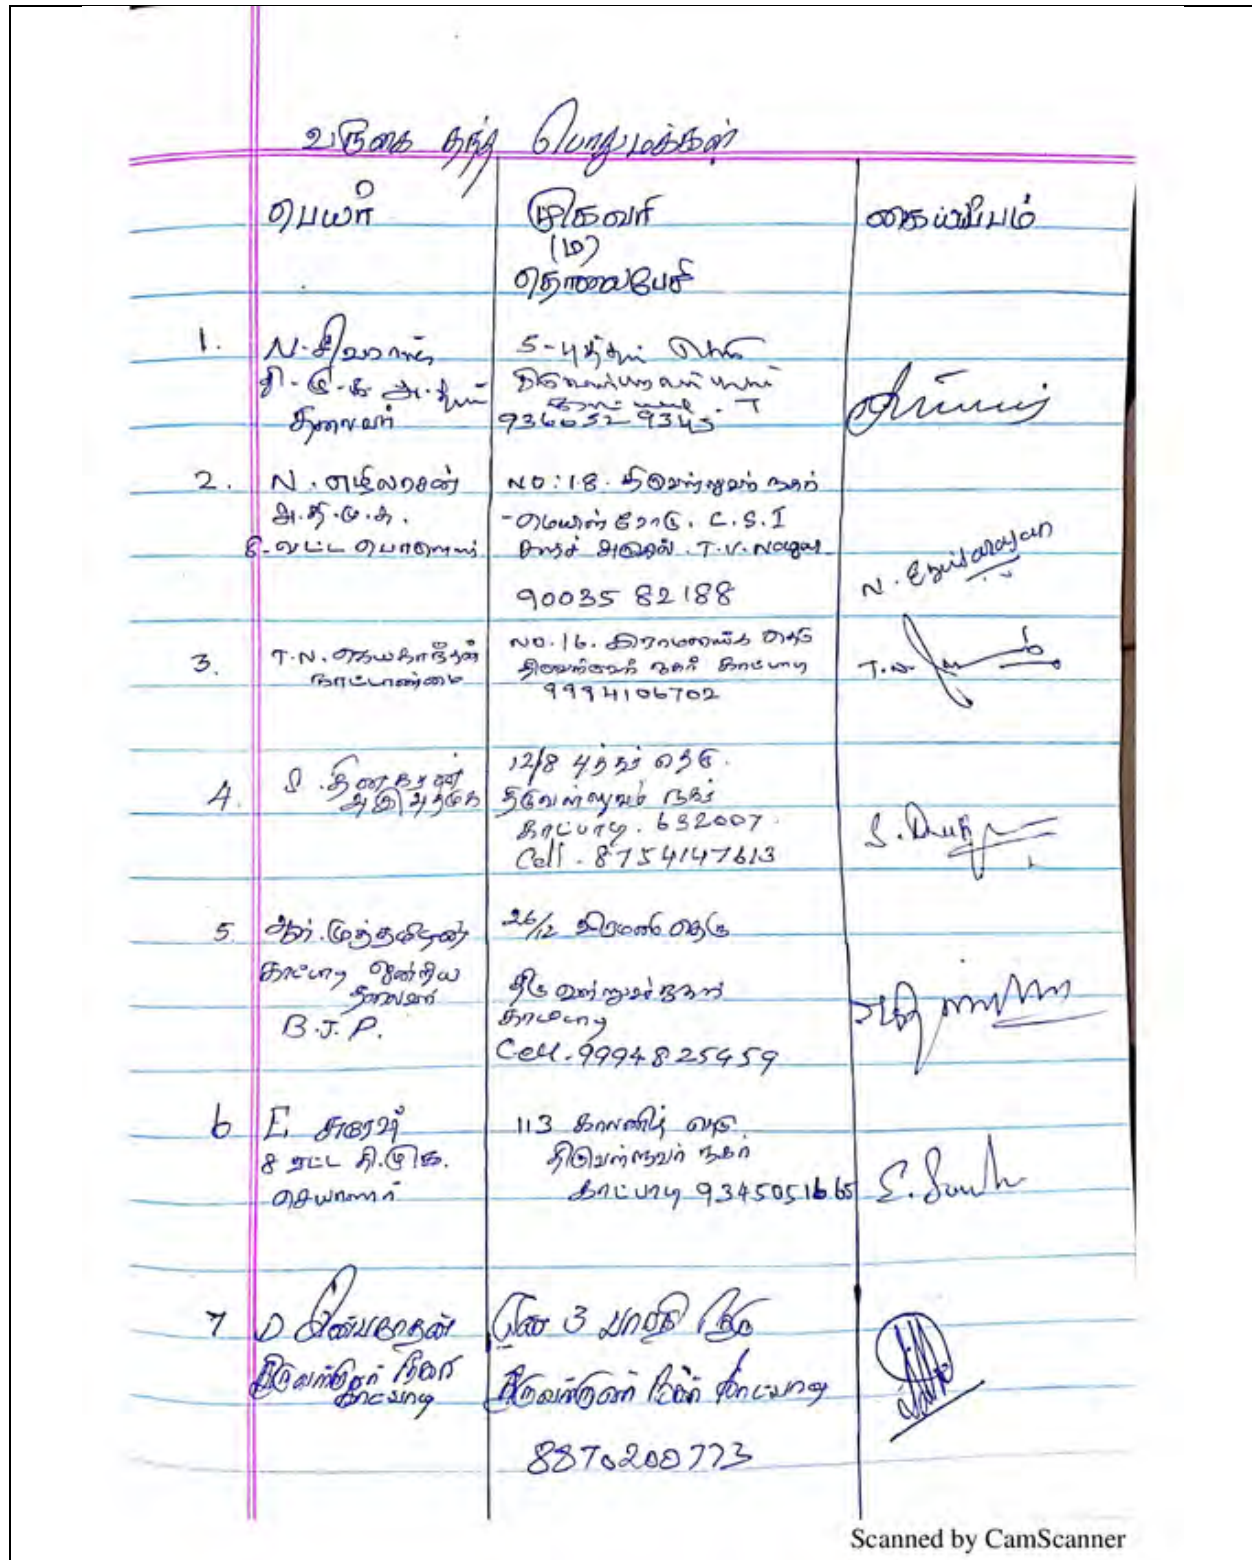 வருகை தந்த பொதுமக்கள்
பெயர்
முகவரி
(ம)
தொலைபேசி
கையொப்பம்
1.
N. சிவராஜ்
தி.மு.க அ.
தலைவர்
5-புத்தர் தெரு
திருவள்ளுவர் நகர்
2.
N. எழிலரசன்
அ.தி.மு.க.
8-வட்ட பொருளாளர்
NO:18. திருவள்ளுவர் நகர்
-மெயின் ரோடு. C.S.I
சர்ச் அருகில். T.V. Nagar
90035 82188
N. Ezhilarasan
3.
T.N. ஜெயகாந்தன்
நாட்டாண்மை
NO.16. தெரு
திருவள்ளுவர் நகர் காட்பாடி
9994106702
T.N.
4.
S. தினகரன்
அஇஅதிமுக
12/8 புத்தர் தெரு.
திருவள்ளுவர் நகர்
காட்பாடி. 632007.
Cell - 8754147613
5.
ஆர். முத்தமிழன்
காட்பாடி ஒன்றிய
தலைவர்
B.J.P.
26/12 தெரு
திருவள்ளுவர் நகர்
காட்பாடி
Cell. 9994825459
6
E. சுரேஷ்
8 வட்ட தி.மு.க.
செயலாளர்
113 காலனி தெரு
திருவள்ளுவர் நகர்
காட்பாடி 9345051665
7
D இன்பநாதன்
திருவள்ளுவர் நகர்
காட்பாடி
எண் 3 பாரதி தெரு
திருவள்ளுவர் நகர் காட்பாடி
8870200773
Scanned by CamScanner